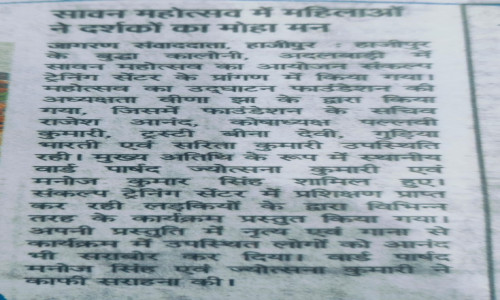 सावन महोत्सव में महिलाओं
ने दर्शकों का मोहा मन
जागरण संवाददाता, हाजीपुर : हाजीपुर
के बुद्धा कालोनी, अदलबाड़ी में
सावन महोत्सव का आयोजन संकल्प
ट्रेनिंग सेंटर के प्रांगण में किया गया।
महोत्सव का उद्घाटन फाउंडेशन की
अध्यक्षता वीणा झा के द्वारा किया
गया, जिसमें फाउंडेशन के सचिव
राजेश आनंद, कोषाध्यक्ष
कुमारी, ट्रस्टी बीना देवी, गुड़िया
भारती एवं सरिता कुमारी उपस्थिति
रही। मुख्य अतिथि के रूप में स्थानीय
वार्ड पार्षद ज्योत्सना कुमारी एवं
मनोज कुमार सिंह शामिल हुए।
संकल्प ट्रेनिंग सेंटर में प्रशिक्षण प्राप्त
कर रही लड़कियों के द्वारा विभिन्न
तरह के कार्यक्रम प्रस्तुत किया गया।
अपनी प्रस्तुति में नृत्य एवं गाना से
कार्यक्रम में उपस्थित लोगों को आनंद
भी सराबोर कर दिया। वार्ड पार्षद
मनोज सिंह एवं ज्योत्सना कुमारी ने
काफी सराहना की।